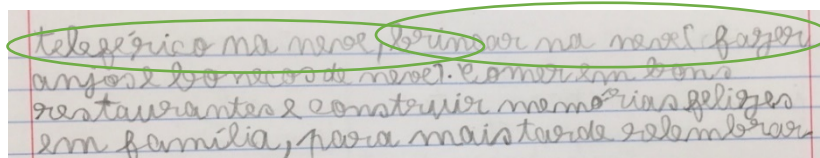 teleférico na neve, brincar na neve( fazer
anjos e bonecos de neve). Comer em bons
restaurantes e construir memórias felizes
em família, para mais tarde relembrar.